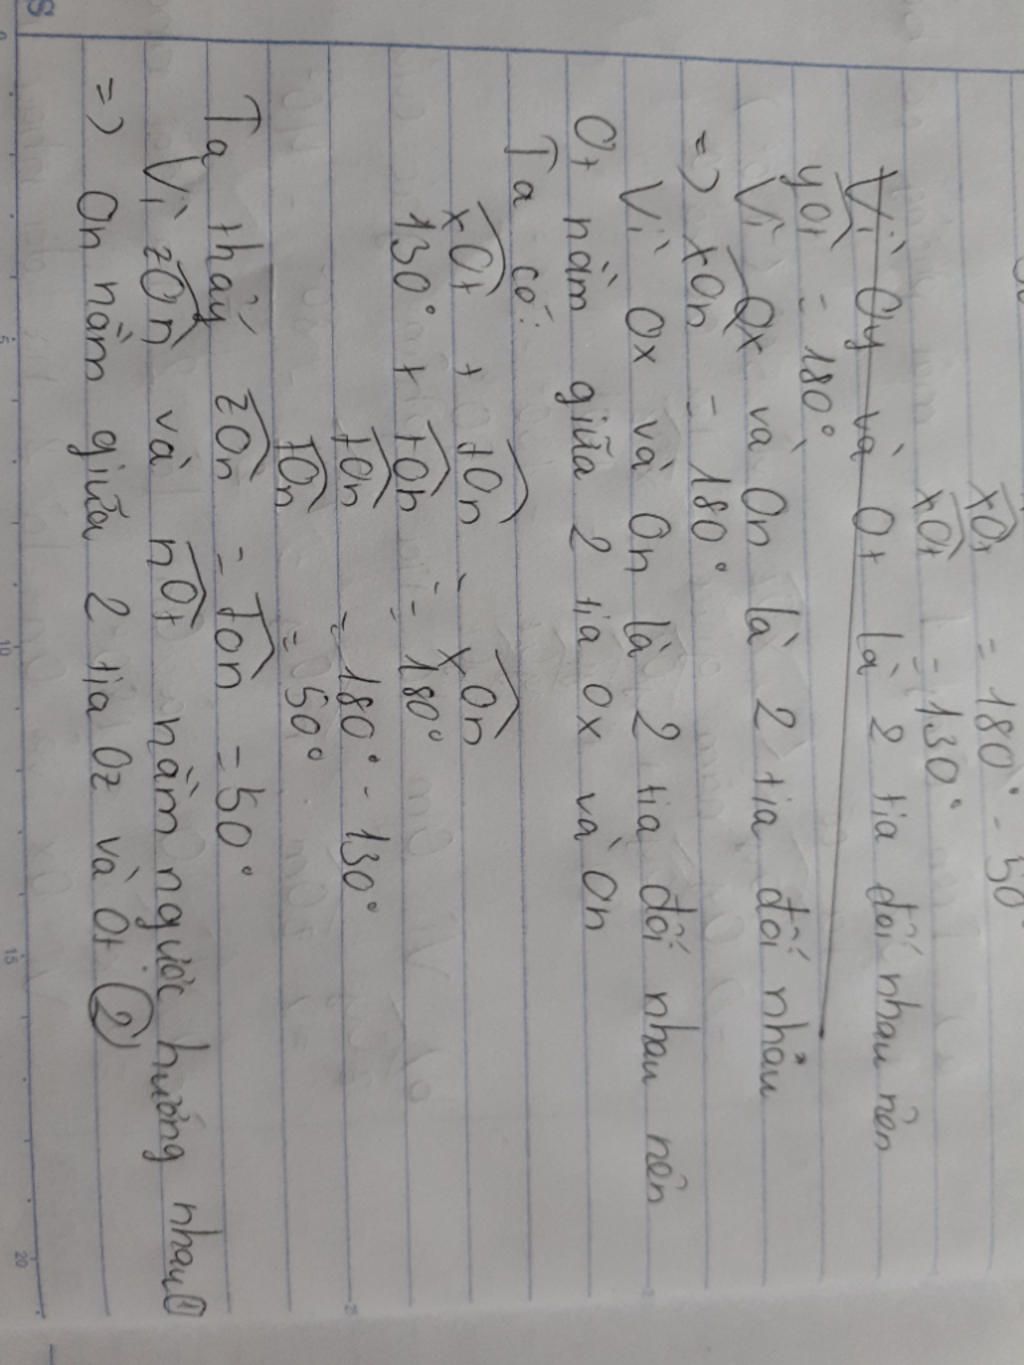 xOt = 180° - 50°
xOt = 130°
Vì Oy và Ot là 2 tia đối nhau nên
yOt = 180°
Vì Ox và On là 2 tia đối nhau
=> xOn = 180°
Vì Ox và On là 2 tia đối nhau nên
Ot nằm giữa 2 tia Ox và On
Ta có:
xOt + tOn = xOn
130° + tOn = 180°
tOn = 180° - 130°
tOn = 50°
Ta thấy zOn = tOn = 50°
Vì zOn và nOt nằm ngược hướng nhau ①
=> On nằm giữa 2 tia Oz và Ot ②
5
10
15
20